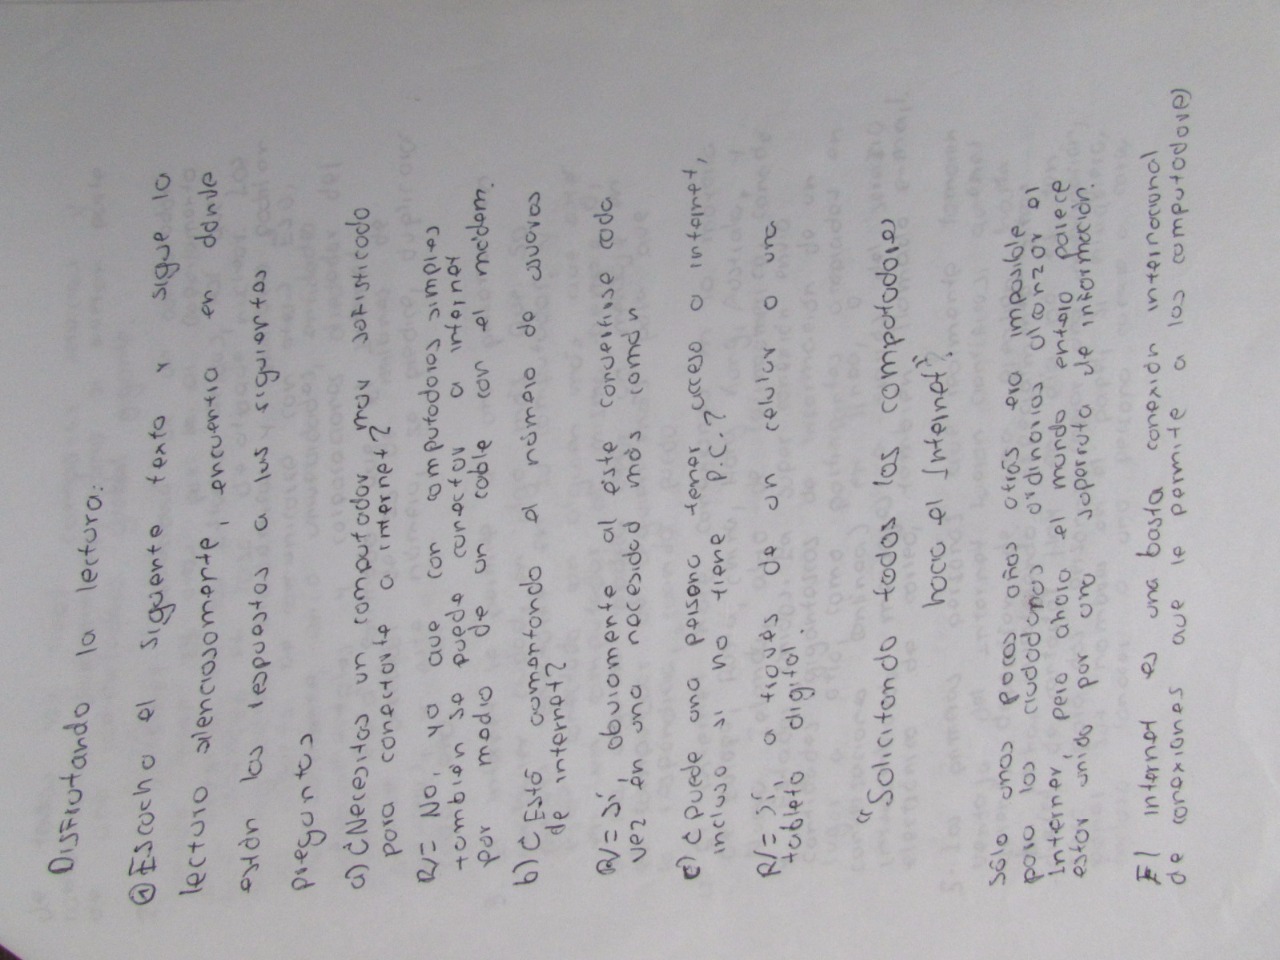 Disfrutando la lectura:
④ Escucha el siguiente texto y sigue la
lectura silenciosamente, encuentra en dónde
están las respuestas a las siguientes
preguntas
a) ¿Necesitas un computador muy sofisticado
para conectarte a internet?
R/= No, ya que con computadores simples
también se puede conectar a internet
por medio de un cable con el módem.
b) ¿Está aumentando el número de usuarios
de internet?
R/= sí, obviamente al este convertirse cada
vez en una necesidad más común.
c) ¿puede una persona tener acceso a internet,
incluso si no tiene P.C.?
R/= sí, a través de un celular o una
tableta digital.
"Solicitando todas las computadoras
hacia el Internet".
Sólo unos pocos años atrás era imposible
para los ciudadanos ordinarios alcanzar el
Internet, pero ahora el mundo entero parece
estar unido por una superruta de información.
El internet es una basta conexión internacional
de conexiones que le permite a las computadora)